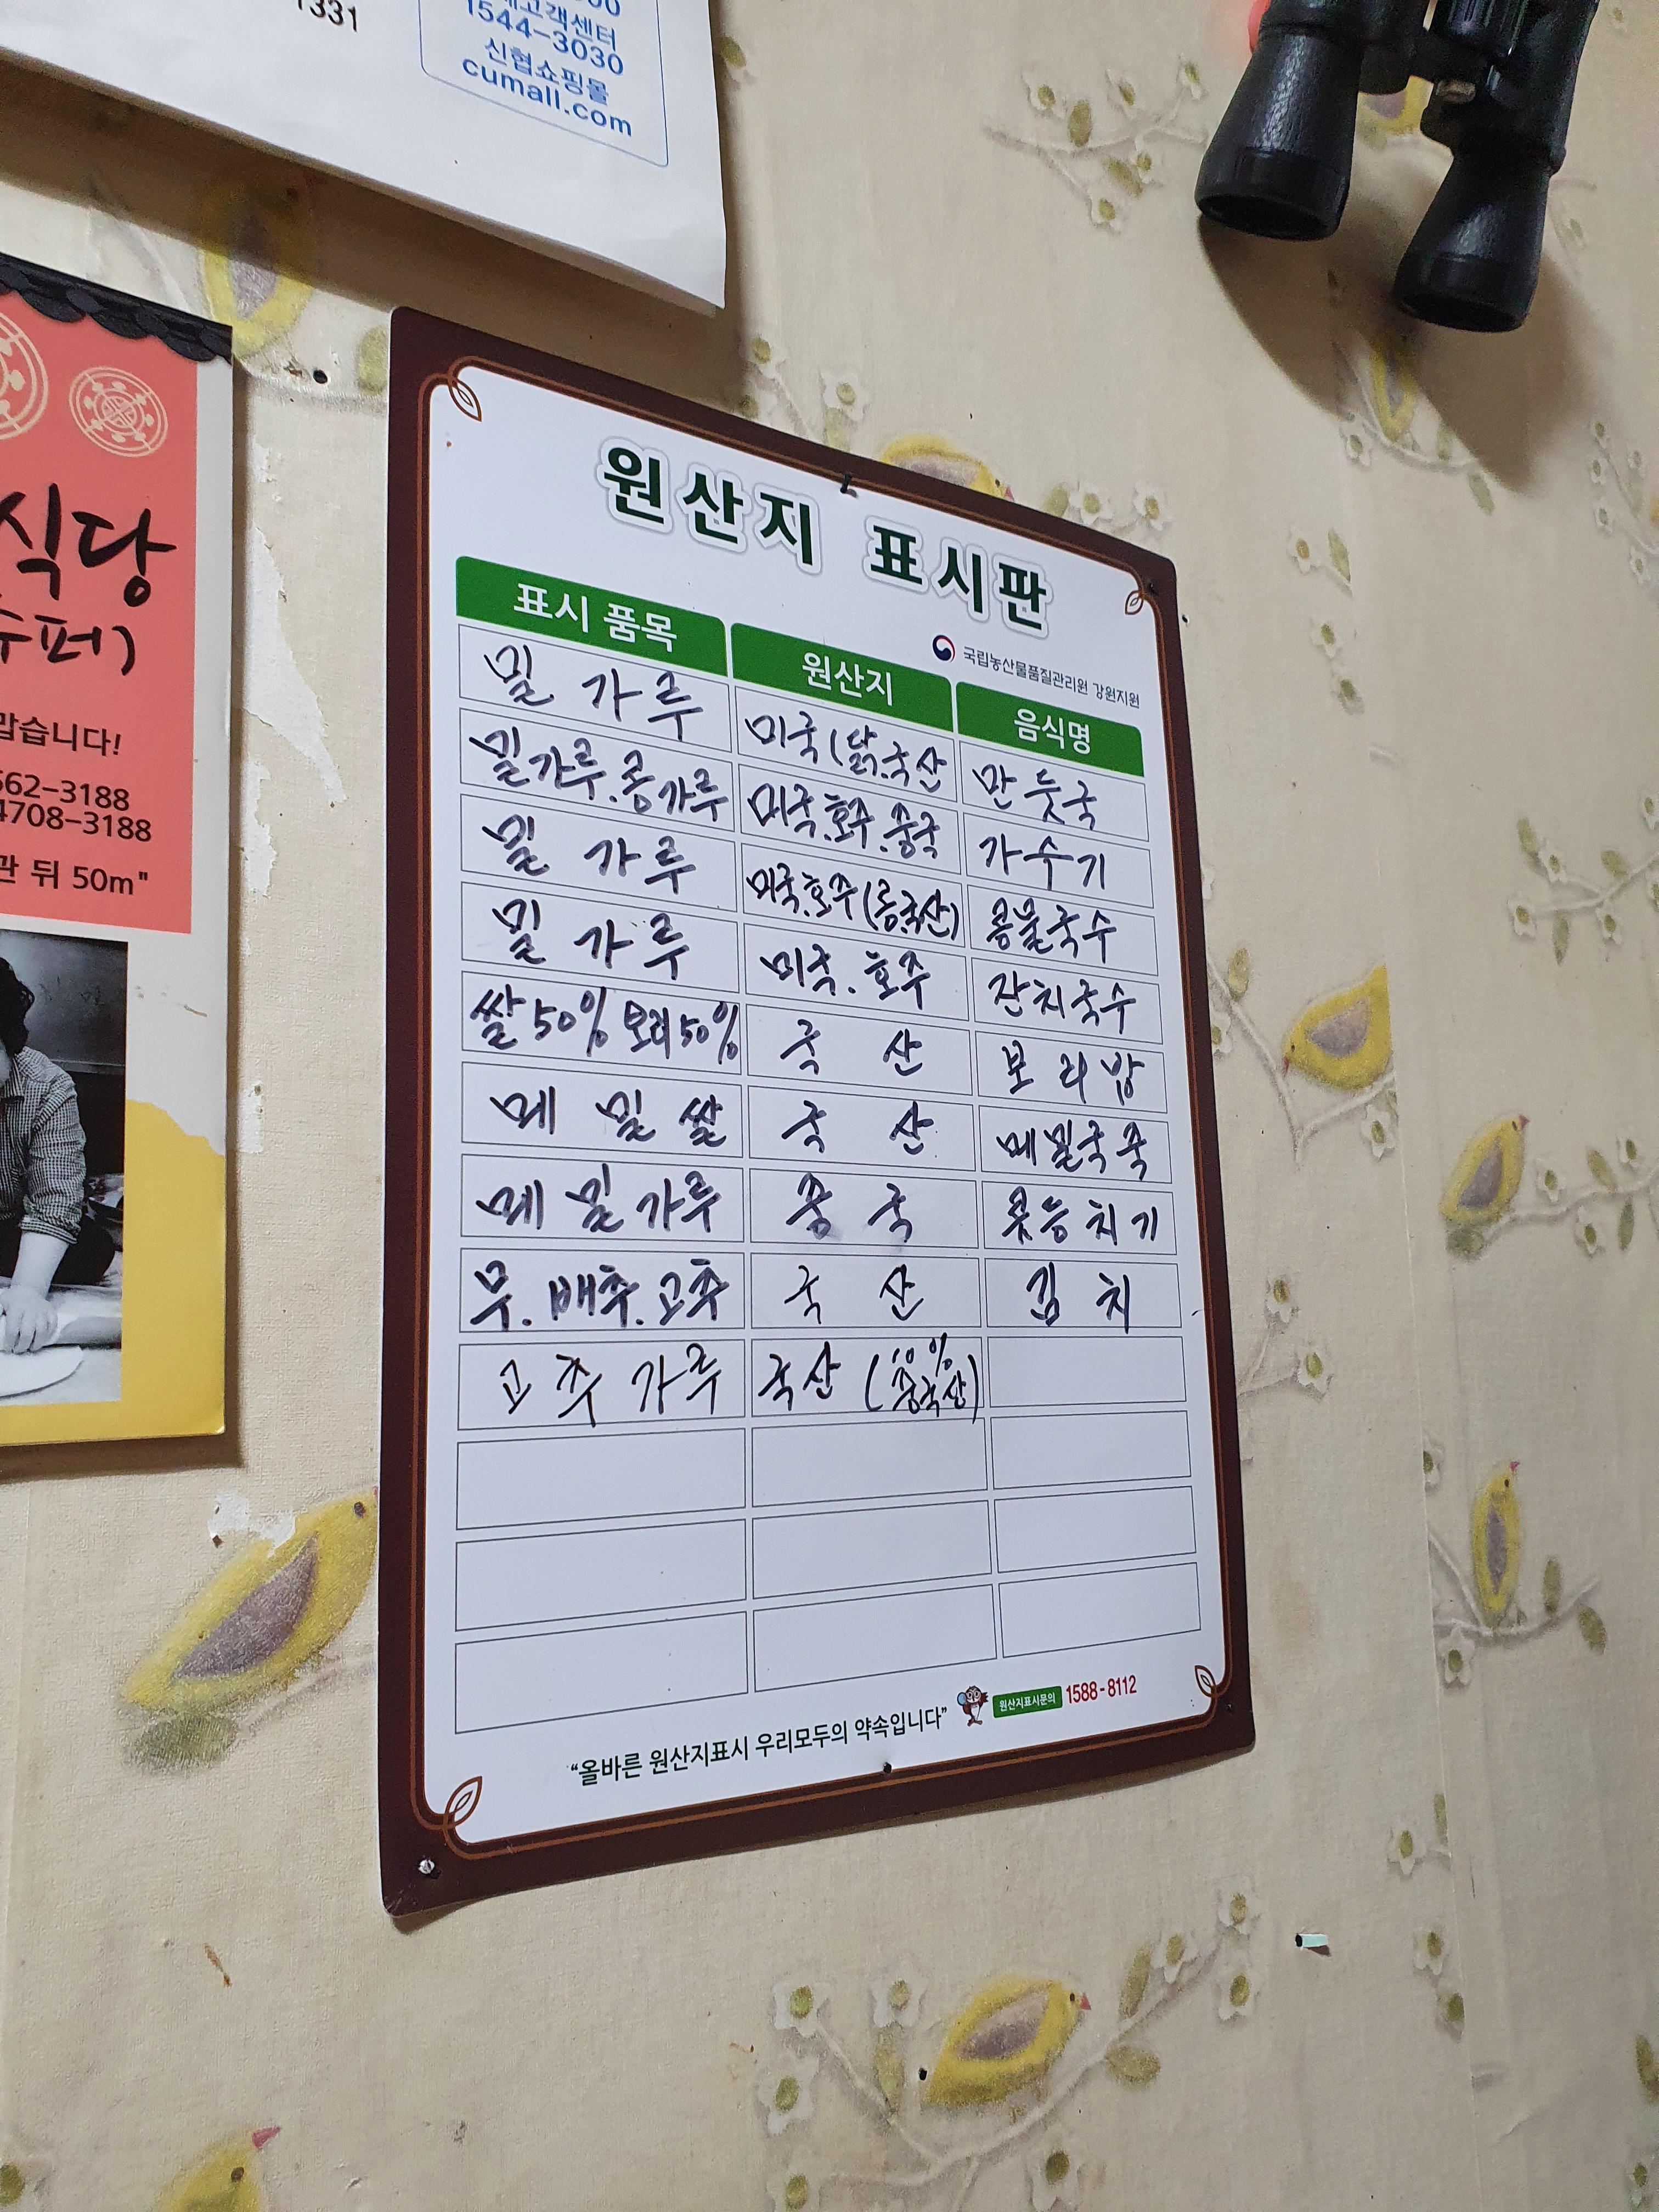 1331
1544-3030
신협쇼핑몰
cumall.com
식당
맙습니다!
562-3188
4708-3188
관 뒤 50m"
원산지 표시판
국립농산물품질관리원 강원지원
표시 품목 원산지 음식명
밀가루 미국(닭.국산 만둣국
밀가루.콩가루 미국.호주.중국 가수기
밀가루 미국.호주(콩.국산) 콩물국수
밀가루 미국.호주 잔치국수
쌀50% 보리50% 국산 보리밥
메밀쌀 국산 메밀국죽
메밀가루 중국 콧등치기
무.배추.고추 국산 김치
고추가루 국산(10% 중국산)
"올바른 원산지표시 우리모두의 약속입니다" 원산지표시문의 1588-8112